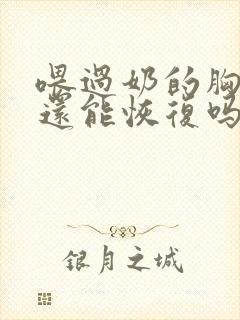 喂過奶的胸
還能恢復吗
銀月之城